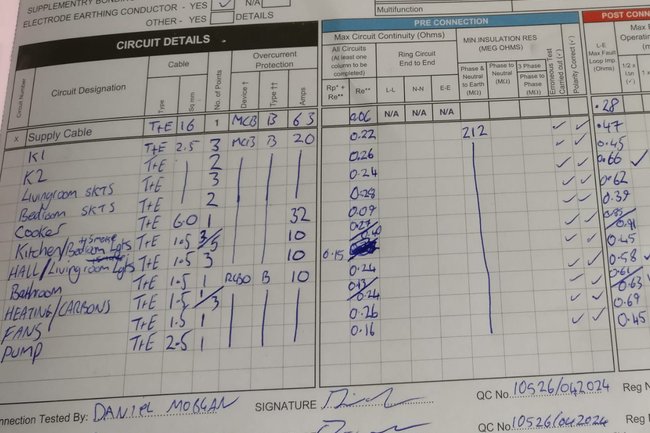 SUPPLEMENTRY BONDING
ELECTRODE EARTHING CONDUCTOR - YES ✓ N/A
OTHER - YES DETAILS
Multifunction
CIRCUIT DETAILS
PRE CONNECTION
POST CONN
Circuit Number
Circuit Designation
Cable
Type
Sq mm
No. of Points
Overcurrent Protection
Device †
Type ††
Amps
Max Circuit Continuity (Ohms)
All Circuits (At least one column to be completed)
Rp* + Re**
Re**
Ring Circuit End to End
L-L
N-N
E-E
MIN. INSULATION RES (MEG OHMS)
Phase & Neutral to Earth (MΩ)
Phase to Neutral (MΩ)
3 Phase Phase to Phase (MΩ)
Erroneous Test Carried out (✓)
Polarity Correct (✓)
L-E Max Fault Loop Imp (Ohms)
x Supply Cable T+E 16 1 MCB B 63 0.06 N/A N/A N/A .28
K1 T+E 2.5 3 MCB B 20 0.22 212 ✓ ✓ .47
K2 T+E 2 0.26 ✓ ✓ .45
Livingroom SKTS T+E 3 0.24 ✓ ✓ .66 ✓
Bedroom SKTS T+E 2 0.28 ✓ ✓ .62
Cooker T+E 6.0 1 32 0.09 ✓ ✓ .39
Kitchen/Bedroom Lgts +Smoke T+E 1.5 3/5 10
HALL/Livingroom Lgts T+E 1.5 3 10 0.15 0.45
Bathroom T+E 1.5 1 RCBO B 10 0.24 0.58
HEATING/CARBONS T+E 1.5 1/3 0.13 0.24 0.61 0.63
FANS T+E 1.5 1 0.26 0.69
PUMP T+E 2.5 1 0.16 ✓ ✓ 0.45
Connection Tested By: DANIEL MORGAN SIGNATURE QC No 10526/042024 Reg N
QC No 10526/042024 Reg